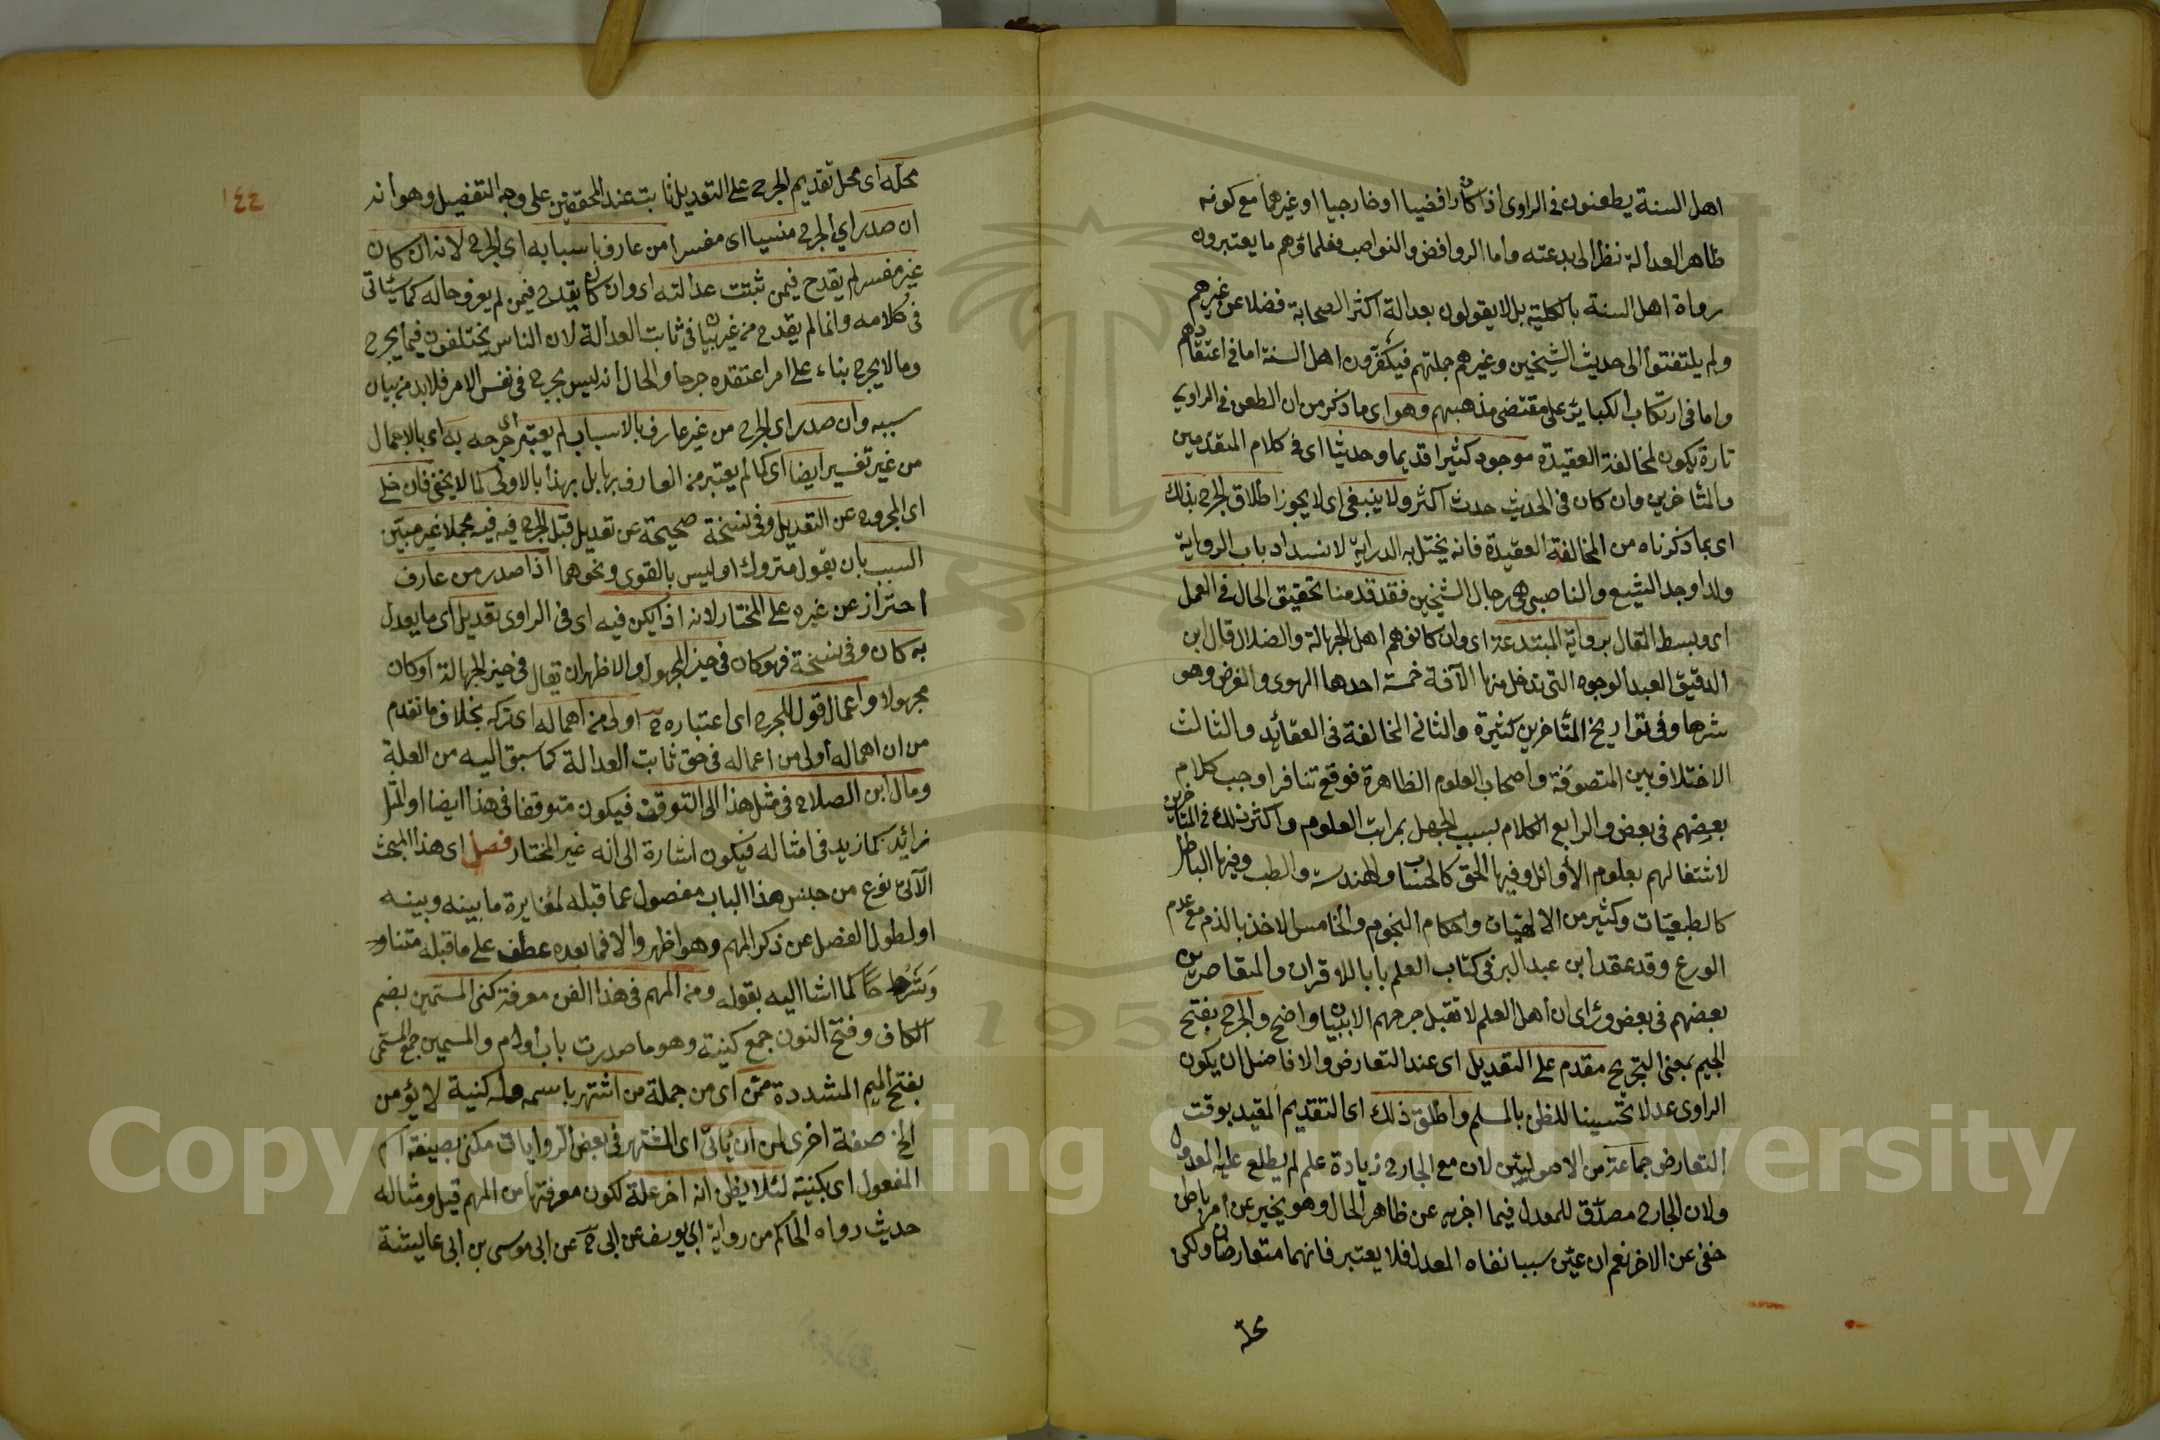 اهل السنة يطعنون فى الراوى اذا كان رافضيا او خارجيا او غيرهما مع كونه
ظاهر العدالة نظرا الى بدعته واما الروافض والنواصب فعلماؤهم ما يعتبرون
رواة اهل السنة بالكلية بل لا يقولون بعدالة اكثر الصحابة فضلا عن غيرهم
ولم يلتفتوا الى حديث الشيخين وغيرهم جملتهم فيكفرون اهل السنة اما فى اعتقادهم
واما فى ارتكاب الكباير على مقتضى مذهبهم وهو اى ما ذكر من ان الطعن فى الراوي
تارة يكون لمخالفة العقيدة موجود كثيرا قديما وحديثا اى فى كلام المتقدمين
والمتأخرين وان كان فى الحديث حدث اكثر ولا ينبغى اى لا يجوز اطلاق الجرح بذلك
اى بما ذكرناه من المخالفة العقيدة فانه يختل به الدراية لانسداد باب الرواية
ولذا وجد الشيع والناصبى فى رجال الشيخين فقد قدمنا تحقيق الحال فى العمل
اى وبسط المقال برواية المبتدعة اى وان كانوهم اهل الجهالة والضلال قال ابن
الدقيق العبد الوجوه التى تدخل منها الآفة خمسة احدها الهوى والغرض وهو
شرها وفى تواريخ المتأخرين كثيرة والثانى المخالفة فى العقائد والثالث
الاختلاف بين المتصوفة واصحاب العلوم الظاهرة فوقع تنافر اوجب كلام
بعضهم فى بعض والرابع الكلام بسبب الجهل بمراتب العلوم واكثر ذلك فى المتأخرين
لاشتغالهم بعلوم الأوائل وفيها الحق كالحساب والهندسة والطب وفيها الباطل
كالطبعيات وكثير من الالهيات واحكام النجوم والخامس الاخذ بالذم مع عدم
الورع وقد عقد ابن عبد البر فى كتاب العلم بابا للاقران والمتقاصرين
بعضهم فى بعض ورأى ان أهل العلم لا تقبل جرحهم الا ببيان واضح والجرح بفتح
الجيم بمعنى التجريح مقدم على التعديل اى عند التعارض والا فاضل ان يكون
الراوى عدلا تحسينا للظن بالمسلم واطلق ذلك اى التقديم المقيد بوقت
التعارض جماعة من الاصوليين لان مع الجارح زيادة علم لم يطلع عليه المعدول
ولان الجارح مصدق للمعدل فيما اخر به عن ظاهر الحال وهو يخبر عن امر باطن
خفى عن الاخر نعم ان عين سببا نفاه المعدل فلا يعتبر فانهما متعارضان ولكن
محله
١٤٤
محله اى محل تقديم الجرح على التعديل ثابت عند المحققين على وجه التفصيل وهو انه
ان صدر اي الجرح منسيا اى مفسرا من عارف باسبابه اى الجرح لانه ان كان
غير مفسر لم يقدح فيمن ثبتت عدالته اى وان كان يقدح فيمن لم يعرف حاله كما سيأتى
فى كلامه وانما لم يقدح من غير بيان فى ثابت العدالة لان الناس يختلفون فيما يجرح
وما لا يجرح بناء على امر اعتقده جرحا والحال أنه ليس بجرح فى نفس الامر فلا بد من بيان
سببه وان صدر اى الجرح من غير عارف بالاسباب لم يعتبر اى جرحه به اى بالاجمال
من غير تفسير ايضا اى كما لم يعتبر من العارف بها بل بهذا بالاولى كما لا يخفى فان خلى
اى المجروح عن التعديل وفى نسخة صحيحة عن تعديل قبل الجرح فيه فيه مجملا غير مبين
السبب بان يقول متروك او ليس بالقوى ونحوهما اذا صدر من عارف
احتراز عن غيره على المختار لانه اذا لم يكن فيه اى فى الراوى تعديل اى ما يعدل
به كان وفى نسخة فهو كان فى حيز المجهول والاظهر ان يقال فى حيز الجهالة او كان
مجهولا واعمال قول المجرح اى اعتباره ح اولى من اهماله اى تركه بخلاف ما تقدم
من ان اهماله أولى من اعماله فى حق ثابت العدالة كما سبق اليه من العلة
ومال ابن الصلاح فى مثل هذا الى التوقف فيكون متوقفا فى هذا ايضا او المثل
زائد كما زيد فى امثاله فيكون اشارة الى انه غير المختار فصل اى هذا المبحث
الآتى نوع من جنس هذا الباب مفصول عما قبله لمغايرة ما بينه وبينه
او لطول الفصل عن ذكر المهم وهو اظهر والا فما بعده عطف على ما قبله متنا و
وشرحا كما اشا اليه بقوله ومن المهم فى هذا الفن معرفة كنى المستمين بضم
الكاف وفتح النون جمع كنية وهو ما صدرت باب أو ام والمسمين جمع المسمى
بفتح الميم المشددة ممن اى من جملة من اشتهر باسمه وله كنية لا يؤمن
الخ صفة اخرى لمن ان يأتى اى المشتهر فى بعض الروايات مكنى بصيغة اسم
المفعول اى بكنيته لئلا يظن انه اخر علة لكون معرفتها من المهم قيل ومثاله
حديث رواه الحاكم من رواية ابى يوسف عن ابى ح عن ابى موسى بن ابى عايشة
Copyright © King Saud University
195